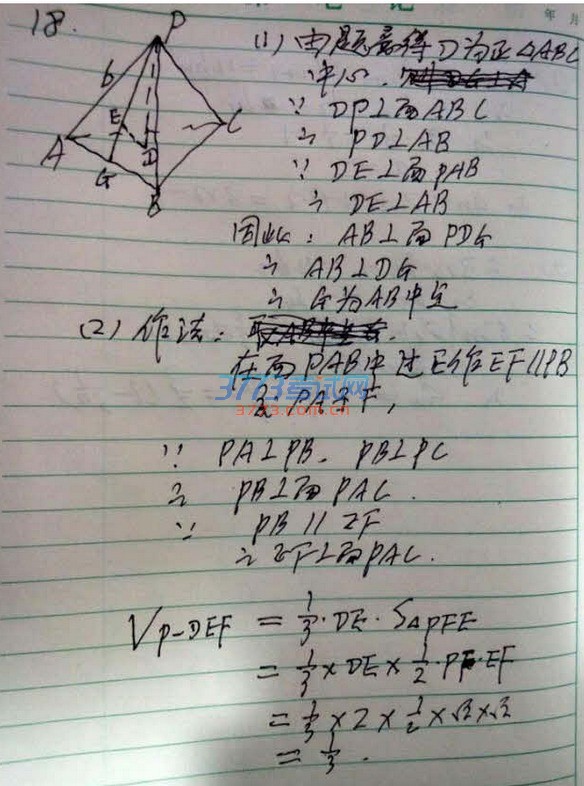 年 月
18.
P
6
E
A
D
C
G
B
(1) 由题意得D为正△ABC
中心.
∵ DP⊥面ABC
∴ PD⊥AB
∵ DE⊥面PAB
∴ DE⊥AB
因此: AB⊥面PDG
∴ AB⊥DG
∴ G为AB中点
(2) 作法:
在面PAB中过E作EF//PB
交PA于F,
3773考试网
3773.com.cn
∵ PA⊥PB. PB⊥PC
∴ PB⊥面PAC.
∵ PB // EF
∴ EF⊥面PAC.
V_{P-DEF} = 1/3 · DE · S△PFE
= 1/3 × DE × 1/2 · PF · EF
= 1/3 × 2 × 1/2 × √2 × √2
= 1/3 .